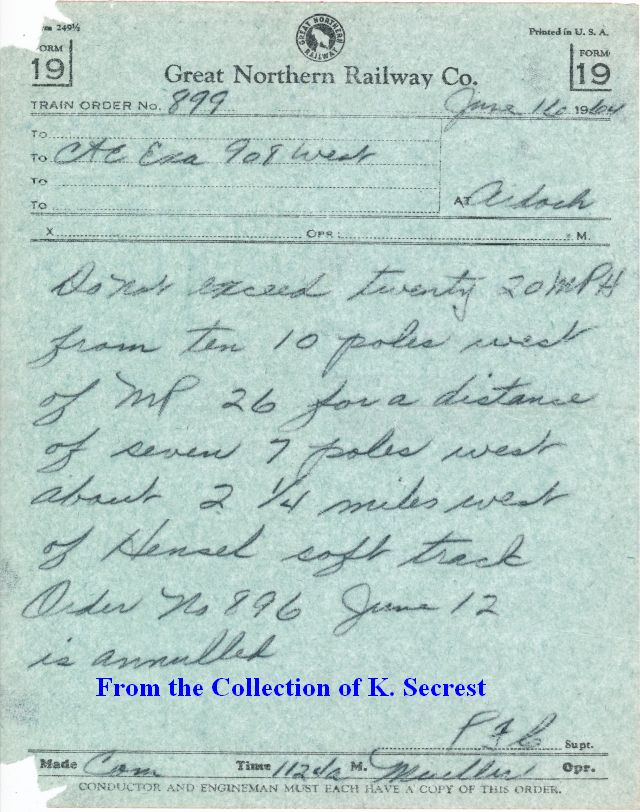 249½
Printed in U. S. A.
FORM
19
GREAT NORTHERN RAILWAY
FORM
19
Great Northern Railway Co.
TRAIN ORDER No. 899 June 16 1964
To
To C&E Exa 908 West
To
To
AT Ardoch
X OPR: M.
Do not exceed twenty 20 MPH
from ten 10 poles west
of MP 26 for a distance
of seven 7 poles west
about 2 1/4 miles west
of Hensel soft track
Order No 896 June 12
is annulled
From the Collection of K. Secrest
Supt.
Made Com Time M. Opr.
CONDUCTOR AND ENGINEMAN MUST EACH HAVE A COPY OF THIS ORDER.